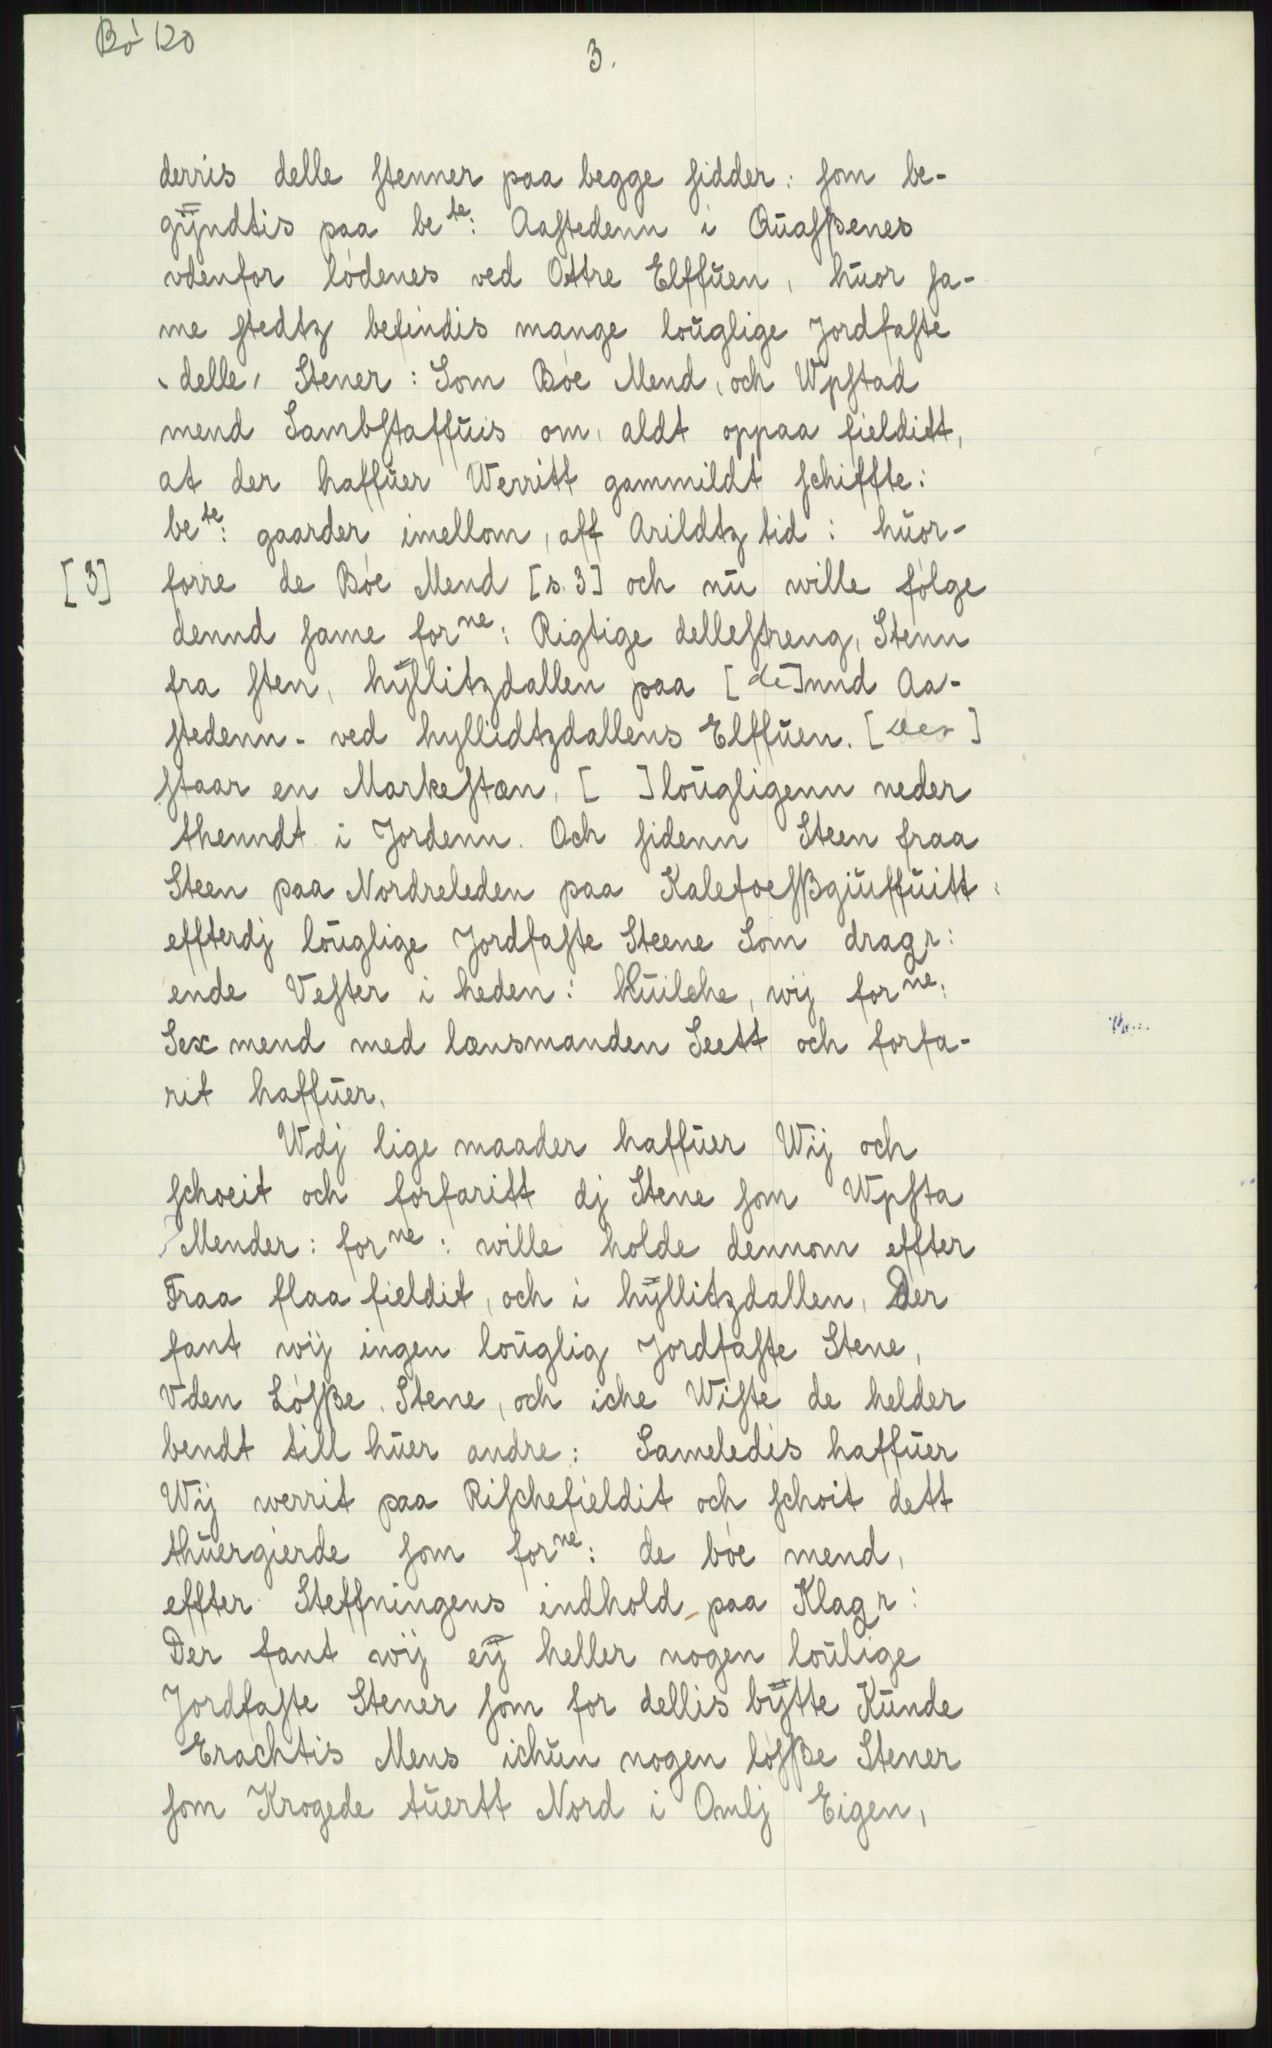 Bó 120
3.
derris delle ſtenner paa begge ſidder: ſom be-
gÿndtis paa be te: Aaſtedenn i Quaſßenes
vdenfor lódenes ved Ottre Elffuen, huor ſa-
me ſtedtz befindis mange louglige Jordfaſte
delle, Stener: Som Bóe Mend, och Wpſtad
mend Sambſtaffuis om, aldt oppaa fielditt,
at der haffuer Werritt gammildt ſchiffte:
be te: gaarder imellom, aff Arildtz tid: huor-
[3] forre de Bóe Mend [s. 3] och nu wille fólge
dennd ſame for ne: Rigtige delleſtreng, Stenn
fra ſten, hÿllitzdallen paa [de]nnd Aa-
ſtedenn - ved hyllidtzdallens Elffuen. [der]
ſtaar en Markeſtæn, [ ] lougligenn neder
thenndt i Jordenn. Och ſidenn Steen fraa
Steen paa Nordreleden paa Kalefoeſßgiuffuitt:
effterdj louglige Jordfaſte Steene Som dragr:
ende Veſter i heden: huilche, wij for ne:
Sex mend med lænsmanden Seett och forfa-
rit haffuer.
Wdj lige maader haffuer Wij och
ſchoeit och forfaritt dj Stene ſom Wpſta
Mender: for ne: wille holde dennom effter
Fraa flaa fieldit, och i hÿllitzdallen, Der
fant wij ingen louglig Jordfaſte Stene,
Vden Lóſße Stene, och iche Wiſte de helder
bendt till huer andre: Sameledis haffuer
Wij werrit paa Riſchefieldit och ſchoit dett
thuergierde ſom for ne: de bóe mend,
effter Steffningens indhold paa Klagr:
Der fant wij eÿ heller nogen loulige
Jordfaſte Stener ſom for dellis bÿtte Kunde
Erachtis Mens ichun nogen lóſße Stener
ſom Krogede tuertt Nord i Omlj Eigen,